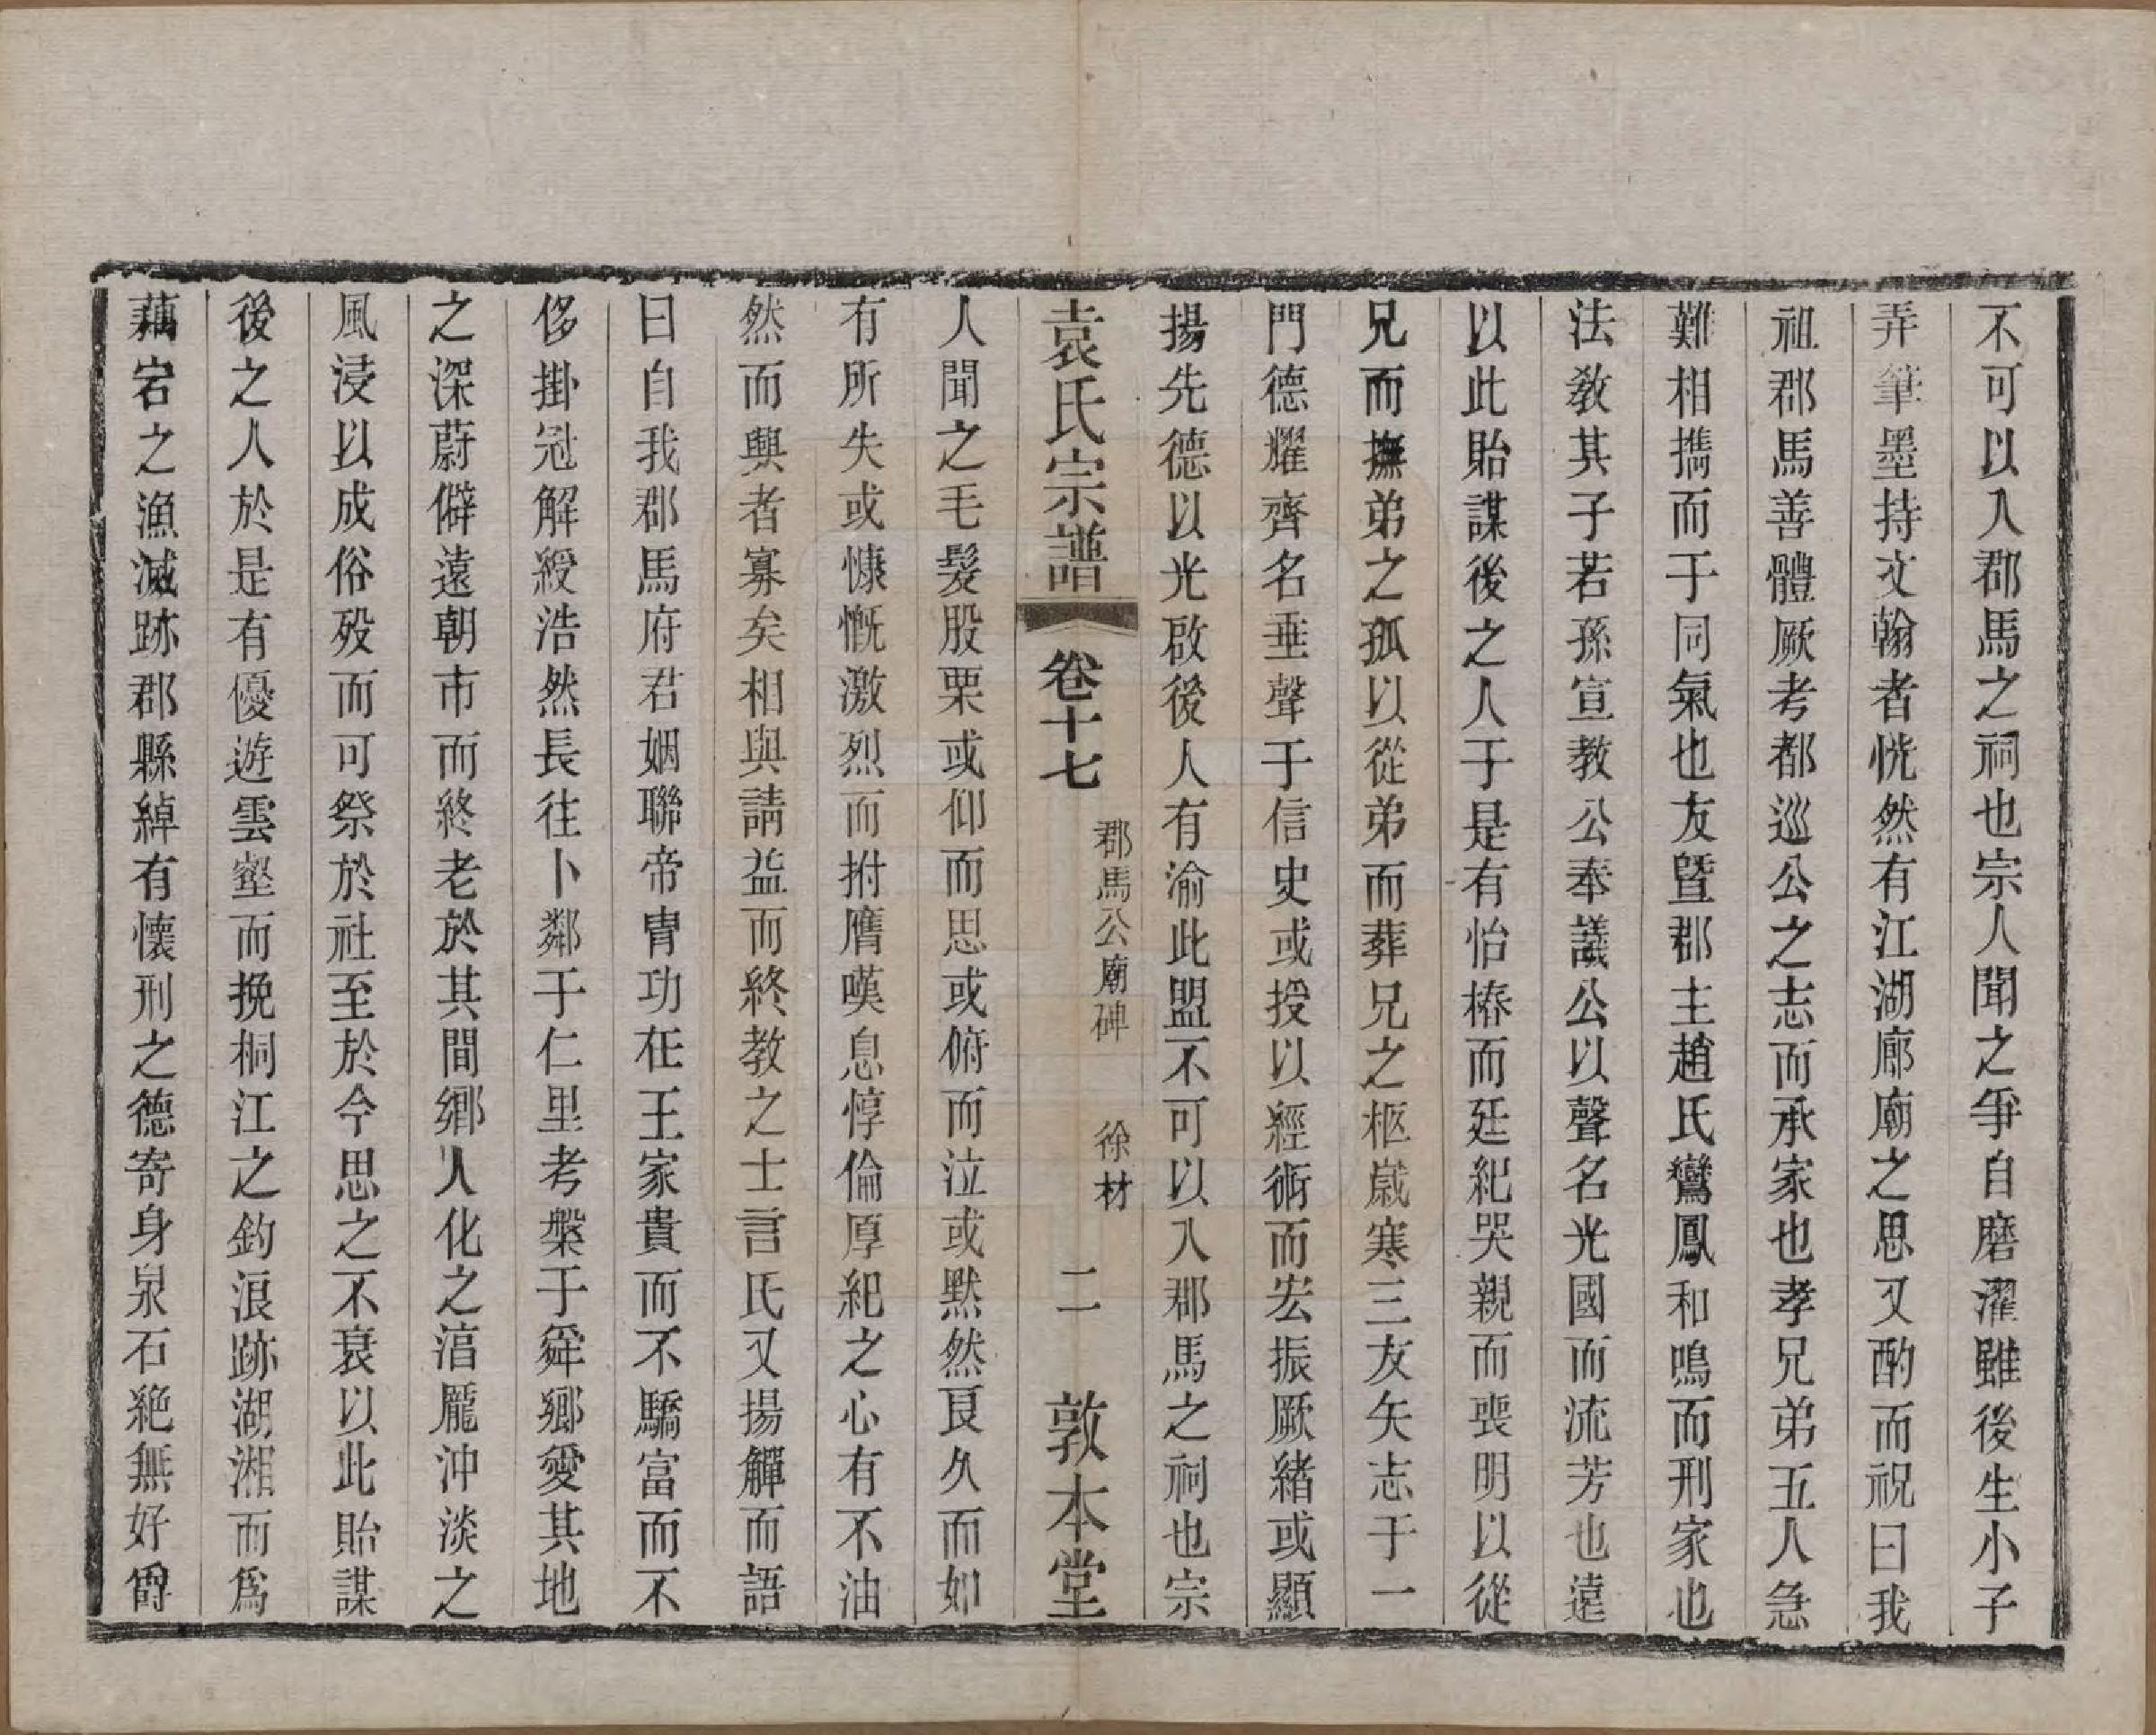 不可以入郡馬之祠也宗人聞之爭自磨濯雖後生小子
弄筆墨持文翰者恍然有江湖廊廟之思又酌而祝曰我
祖郡馬善體厥考都巡公之志而承家也孝兄弟五人急
難相擕而于同氣也友曁郡主趙氏鸞鳳和鳴而刑家也
法教其子若孫宣教公奉議公以聲名光國而流芳也遠
以此貽謀後之人于是有怡椿而廷紀哭親而喪明以從
兄而撫弟之孤以從弟而葬兄之柩嵗寒三友矢志于一
門德耀齊名垂聲于信史或授以經術而宏振厥緒或顯
揚先德以光啟後人有渝此盟不可以入郡馬之祠也宗
袁氏宗譜 卷十七 郡馬公廟碑 徐材 二 敦本堂
人聞之毛髮股栗或仰而思或俯而泣或黙然良久而如
有所失或慷慨激烈而拊膺嘆息惇倫厚紀之心有不油
然而興者寡矣相與請益而終教之士言氏又揚觶而語
曰自我郡馬府君姻聯帝胄功在王家貴而不驕富而不
侈掛冠解綬浩然長往卜鄰于仁里考槃于舜鄉愛其地
之深蔚僻遠朝市而終老於其間鄉人化之湻龐沖淡之
風浸以成俗歿而可祭於社至於今思之不衰以此貽謀
後之人於是有優遊雲壑而挽桐江之釣浪跡湖湘而爲
藕宕之漁滅跡郡縣綽有懷刑之德寄身泉石絶無好爵